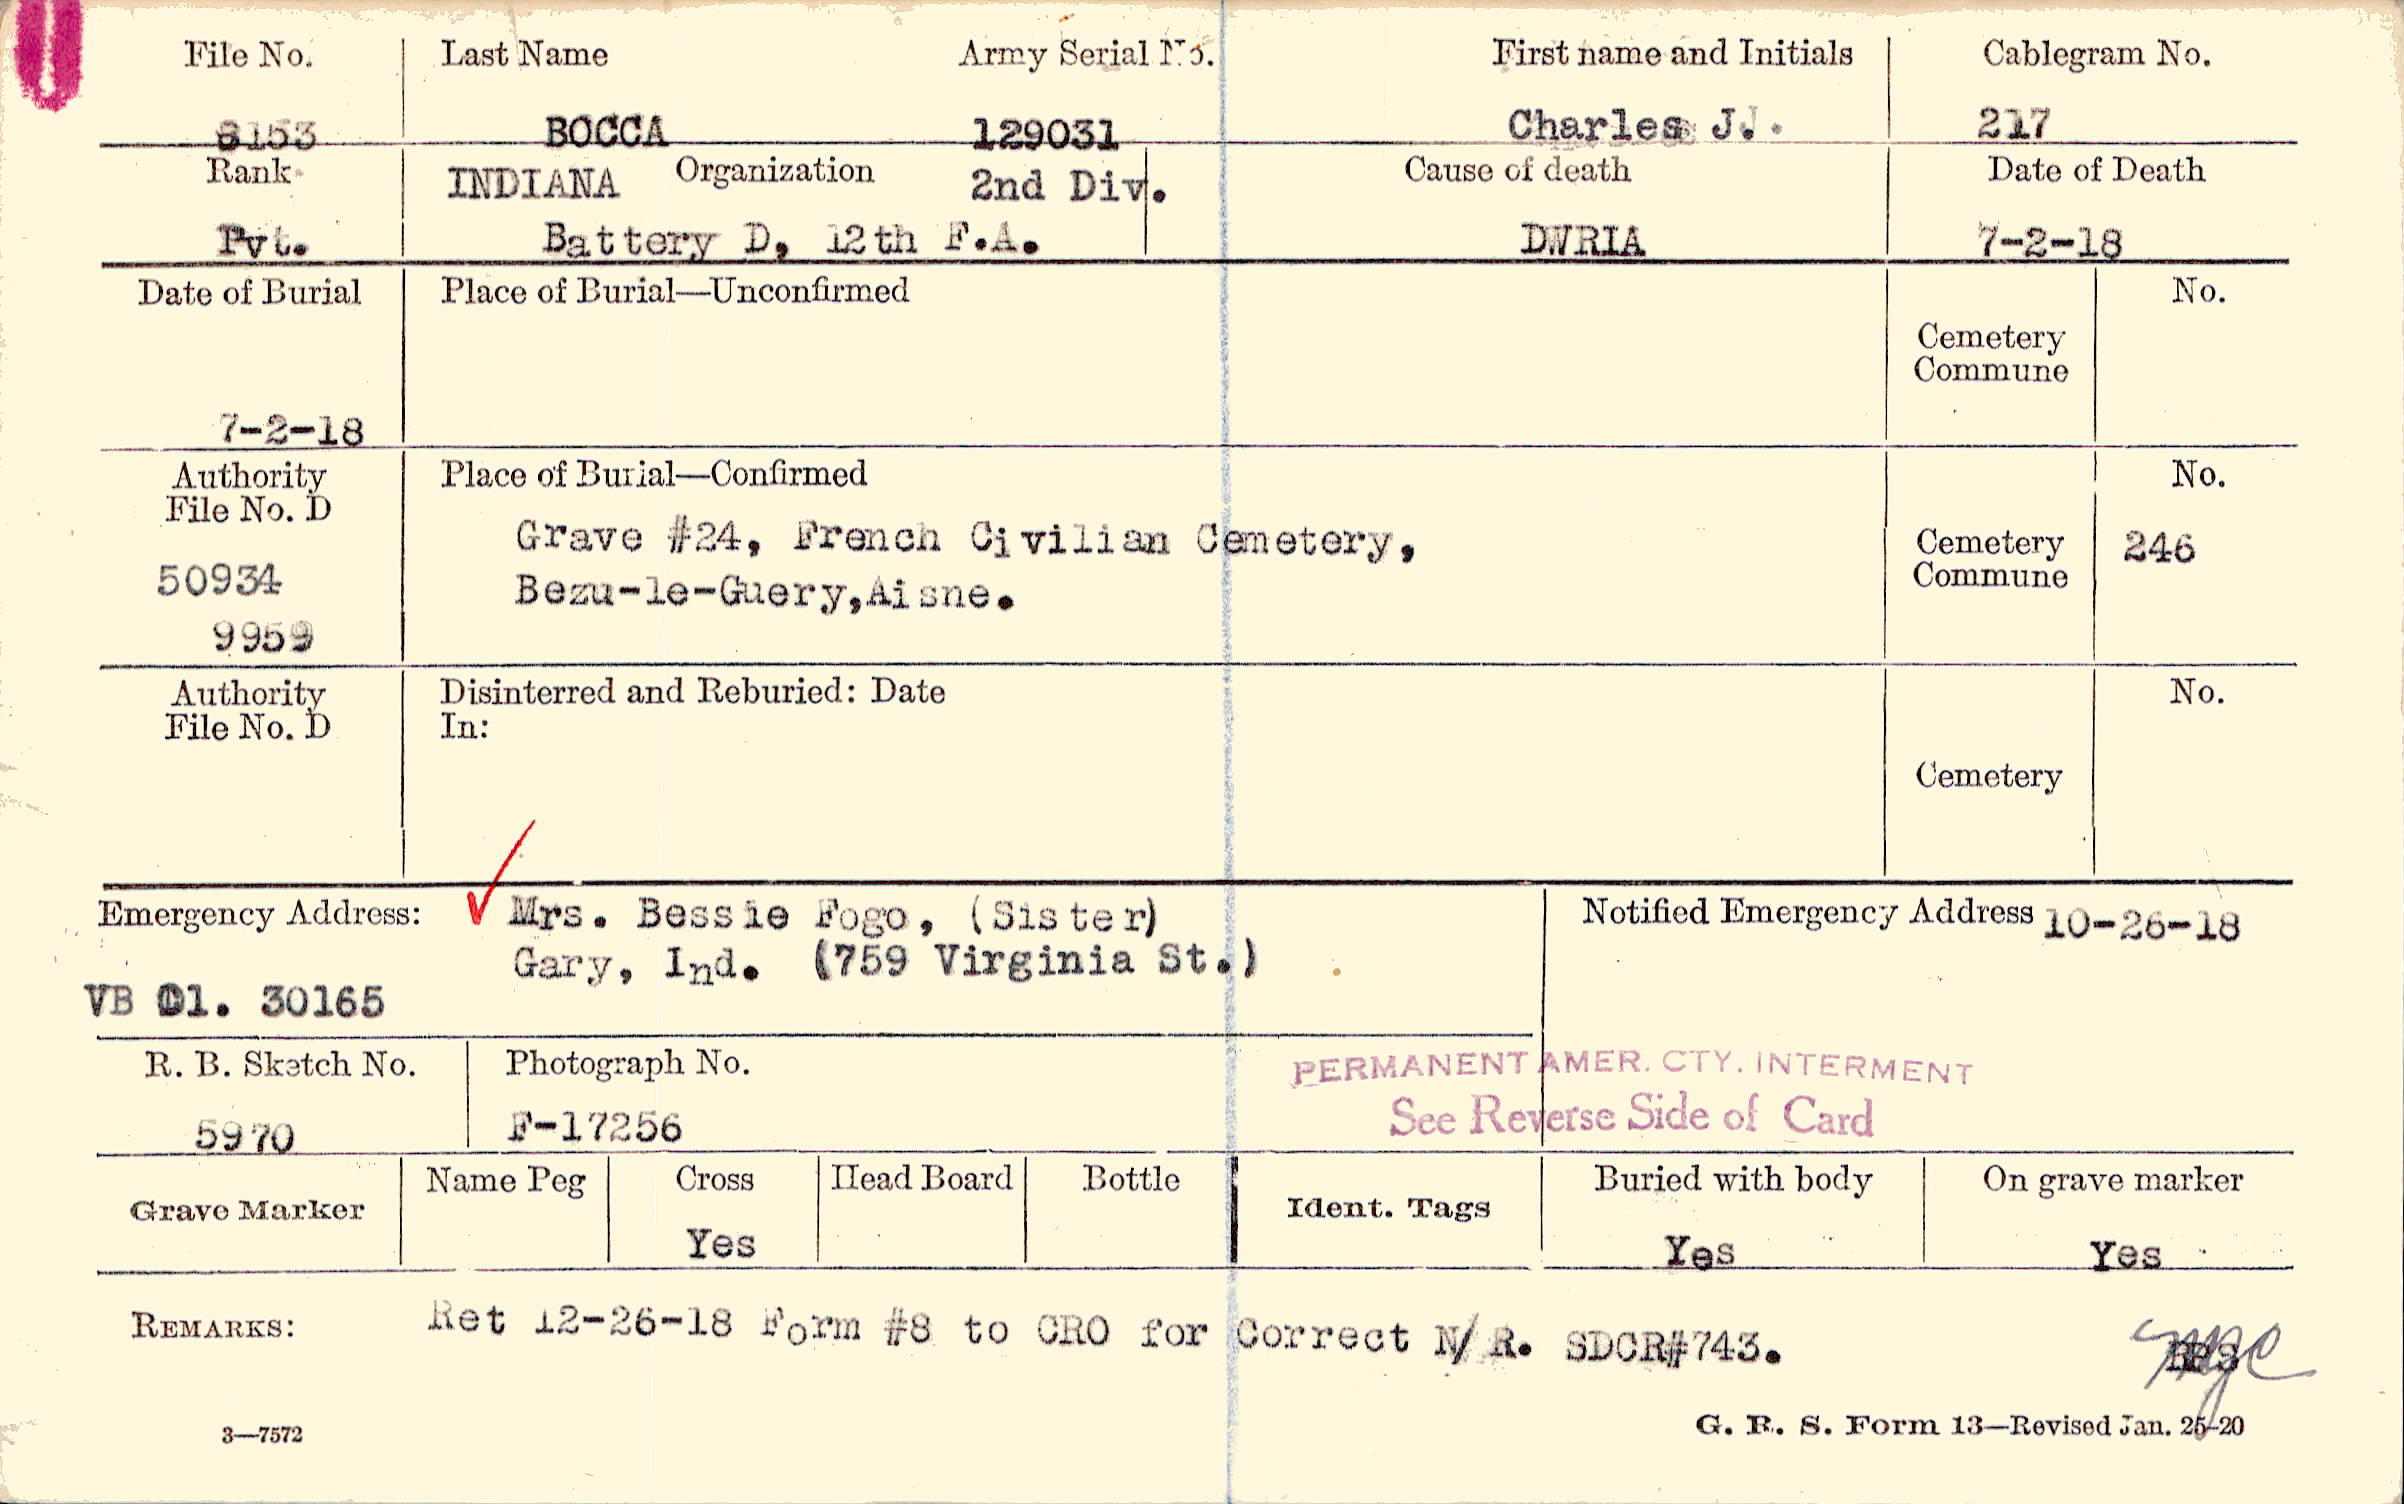 File No. Last Name Army Serial No. First name and Initials Cablegram No.
8153 BOCCA 129031 Charles J. 217
Rank INDIANA Organization 2nd Div. Cause of death Date of Death
Pvt. Battery D, 12th F.A. DWRIA 7-2-18
Date of Burial Place of Burial—Unconfirmed No.
Cemetery
Commune
7-2-18
Authority Place of Burial—Confirmed No.
File No. D
Grave #24, French Civilian Cemetery, Cemetery 246
50934 Bezu-le-Guery,Aisne. Commune
9959
Authority Disinterred and Reburied: Date No.
File No. D In:
Cemetery
Emergency Address: Mrs. Bessie Fogo, (Sister) Notified Emergency Address 10-26-18
Gary, Ind. (759 Virginia St.)
VB 30165
R. B. Sketch No. Photograph No. PERMANENT AMER. CTY. INTERMENT
5970 F-17256 See Reverse Side of Card
Grave Marker Name Peg Cross Head Board Bottle Ident. Tags Buried with body On grave marker
Yes Yes Yes
REMARKS: Ret 12-26-18 Form #8 to CRO for Correct N/R. SDCR#743.
3—7572 G. R. S. Form 13—Revised Jan. 25-20